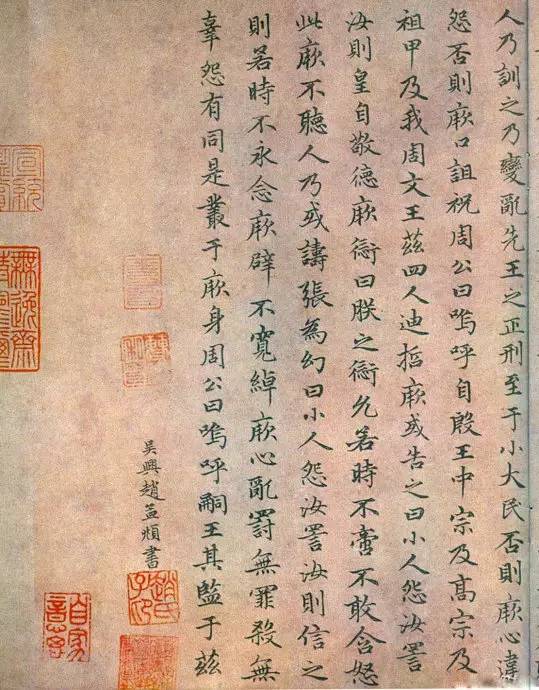 人乃訓之乃變亂先王之正刑至于小大民否則厥心違
怨否則厥口詛祝周公曰嗚呼自殷王中宗及高宗及
祖甲及我周文王茲四人迪哲厥或告之曰小人怨汝詈
汝則皇自敬德厥愆曰朕之愆允若時不啻不敢含怒
此厥不聽人乃或譸張為幻曰小人怨汝詈汝則信之
則若時不永念厥辟不寬綽厥心亂罰無罪殺無
辜怨有同是叢于厥身周公曰嗚呼嗣王其監于茲
吳興趙孟頫書
趙氏子昂
宣統
無逸齋